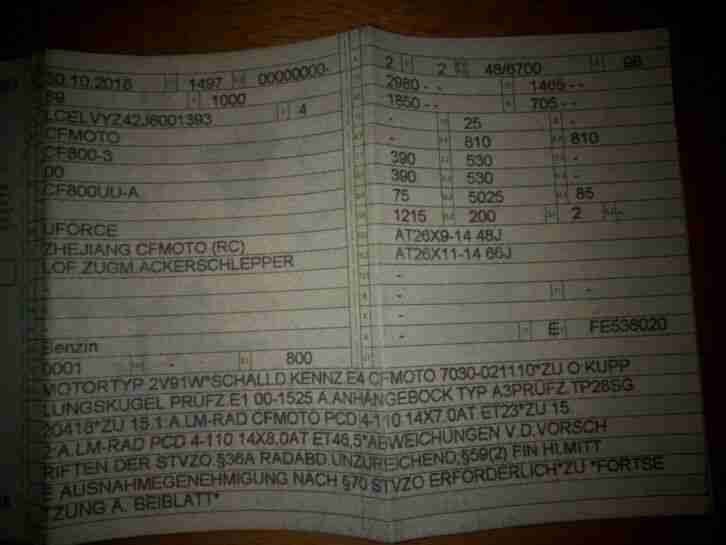 30.10.2018 1497 00000000-
89 1000
LCELVYZ42J6001393 4
CFMOTO
CF800-3
00
CF800UU-A
UFORCE
ZHEJIANG CFMOTO (RC)
LOF.ZUGM.ACKERSCHLEPPER
-
-
-
Benzin
0001 - - 800
2 2 48/6700 98
2980 - - 1465 - -
1850 - - 705 - -
- 25 -
- 810 810
390 530 -
390 530 -
75 5025 85
1215 200 2 -
AT26X9-14 48J
AT26X11-14 66J
-
- -
-
- E FE538020
MOTORTYP 2V91W*SCHALLD KENNZ.E4 CFMOTO 7030-021110*ZU O KUPP
LUNGSKUGEL PRÜFZ.E1 00-1525 A.ANHÄNGEBOCK TYP A3PRÜFZ.TP28SG
20418*ZU 15.1:A.LM-RAD CFMOTO PCD 4-110 14X7.0AT ET23*ZU 15.
2:A.LM-RAD PCD 4-110 14X8.0AT ET46,5*ABWEICHUNGEN V.D.VORSCH
RIFTEN DER STVZO.§36A RADABD.UNZUREICHEND,§59(2) FIN HI.MITT
E AUSNAHMEGENEHMIGUNG NACH §70 STVZO ERFORDERLICH*ZU *FORTSE
*ZUNG A. BEIBLATT*